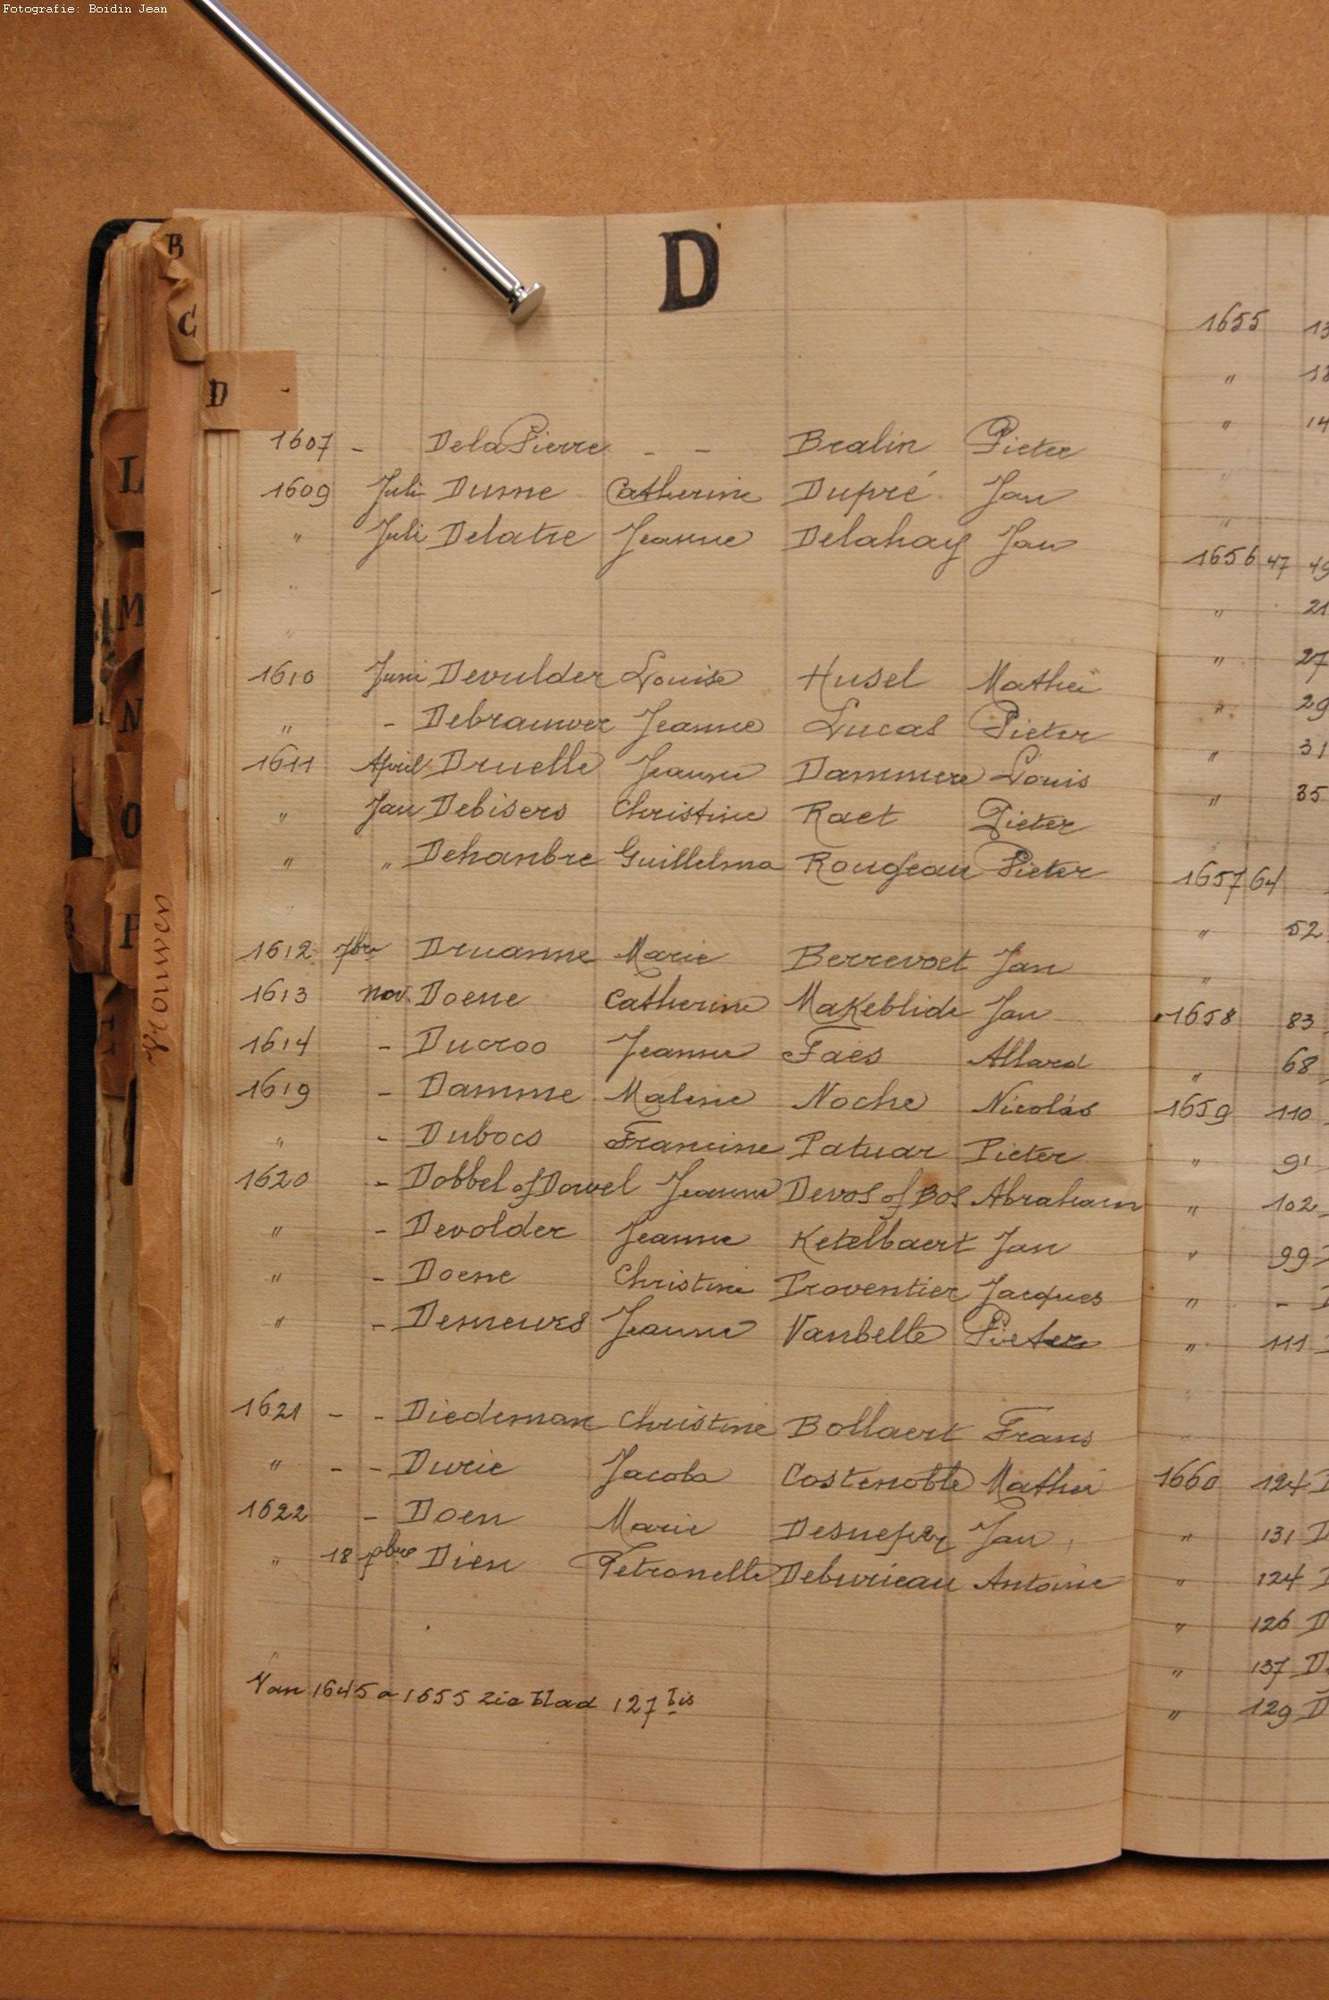 Fotografie: Boidin Jean
D
B
C
D
L
M
N
O
P
Vrouwen
1607 - DelaPierre - - Bralin Pieter
1609 Juli Dusne Catherine Dupré Jan
" Juli Delatre Jeanne Delahay Jan
"
1610 Juni Devulder Louise Husel Mathei
" - Debrauwer Jeanne Lucas Pieter
1611 April Druelle Jeanne Dammere Louis
" Jan Debisers Christine Raet Pieter
" " Dehanbre Guillelma Rougeau Pieter
1612 7bre Druanne Marie Berrevoet Jan
1613 nov. Doene Catherine Makeblide Jan
1614 - Ducroo Jeanne Faes Allard
1619 - Damme Maline Noche Nicolas
" - Dubocs Francine Patuar Pieter
1620 - Dobbel of Dowel Jeanne Devos of Bos Abraham
" - Devolder Jeanne Ketelbaert Jan
" - Doene Christine Proventier Jacques
" - Demeurs Jeanne Vanbelle Pieter
1621 - - Diedeman Christine Bollaert Frans
" - - Durie Jacoba Costenoble Mathei
1622 - Doen Marie Jan
" 18 Dien Petronelle Deburieau Antoine
Van 1645 a 1655 zie blad 127 bis
1655 13
" 13
" 14
"
"
1656 47 49
" 21
" 27
" 29
" 31
" 35
1657 64
" 52
"
1658 83
" 68
1659 110
" 91
" 102
" 99
" -
" 111
1660 124 D
" 131 D
" 124 D
" 126 D
" 137 D
" 129 D